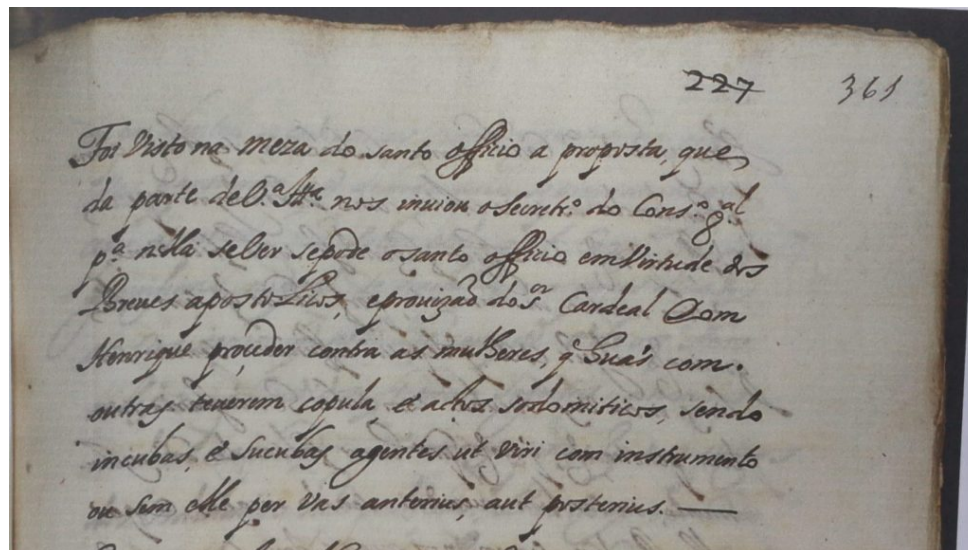 227 361
Foi visto na Meza do santo officio a proposta, que
da parte de V.ª Ill.ª nos inviou o Secretr.º do Cons.º g.al
p.ª nella se ver se pode o santo officio em virtude dos
Breves apostolicos, e provizaõ do s.or Cardeal Dom
Henrique proceder contra as mulheres, q̃ huãs com
outras teverem copula, e actos sodomiticos, sendo
incubas, e sucubas agentes ut viri com instrumento
ou sem elle per vas anterius, aut posterius.